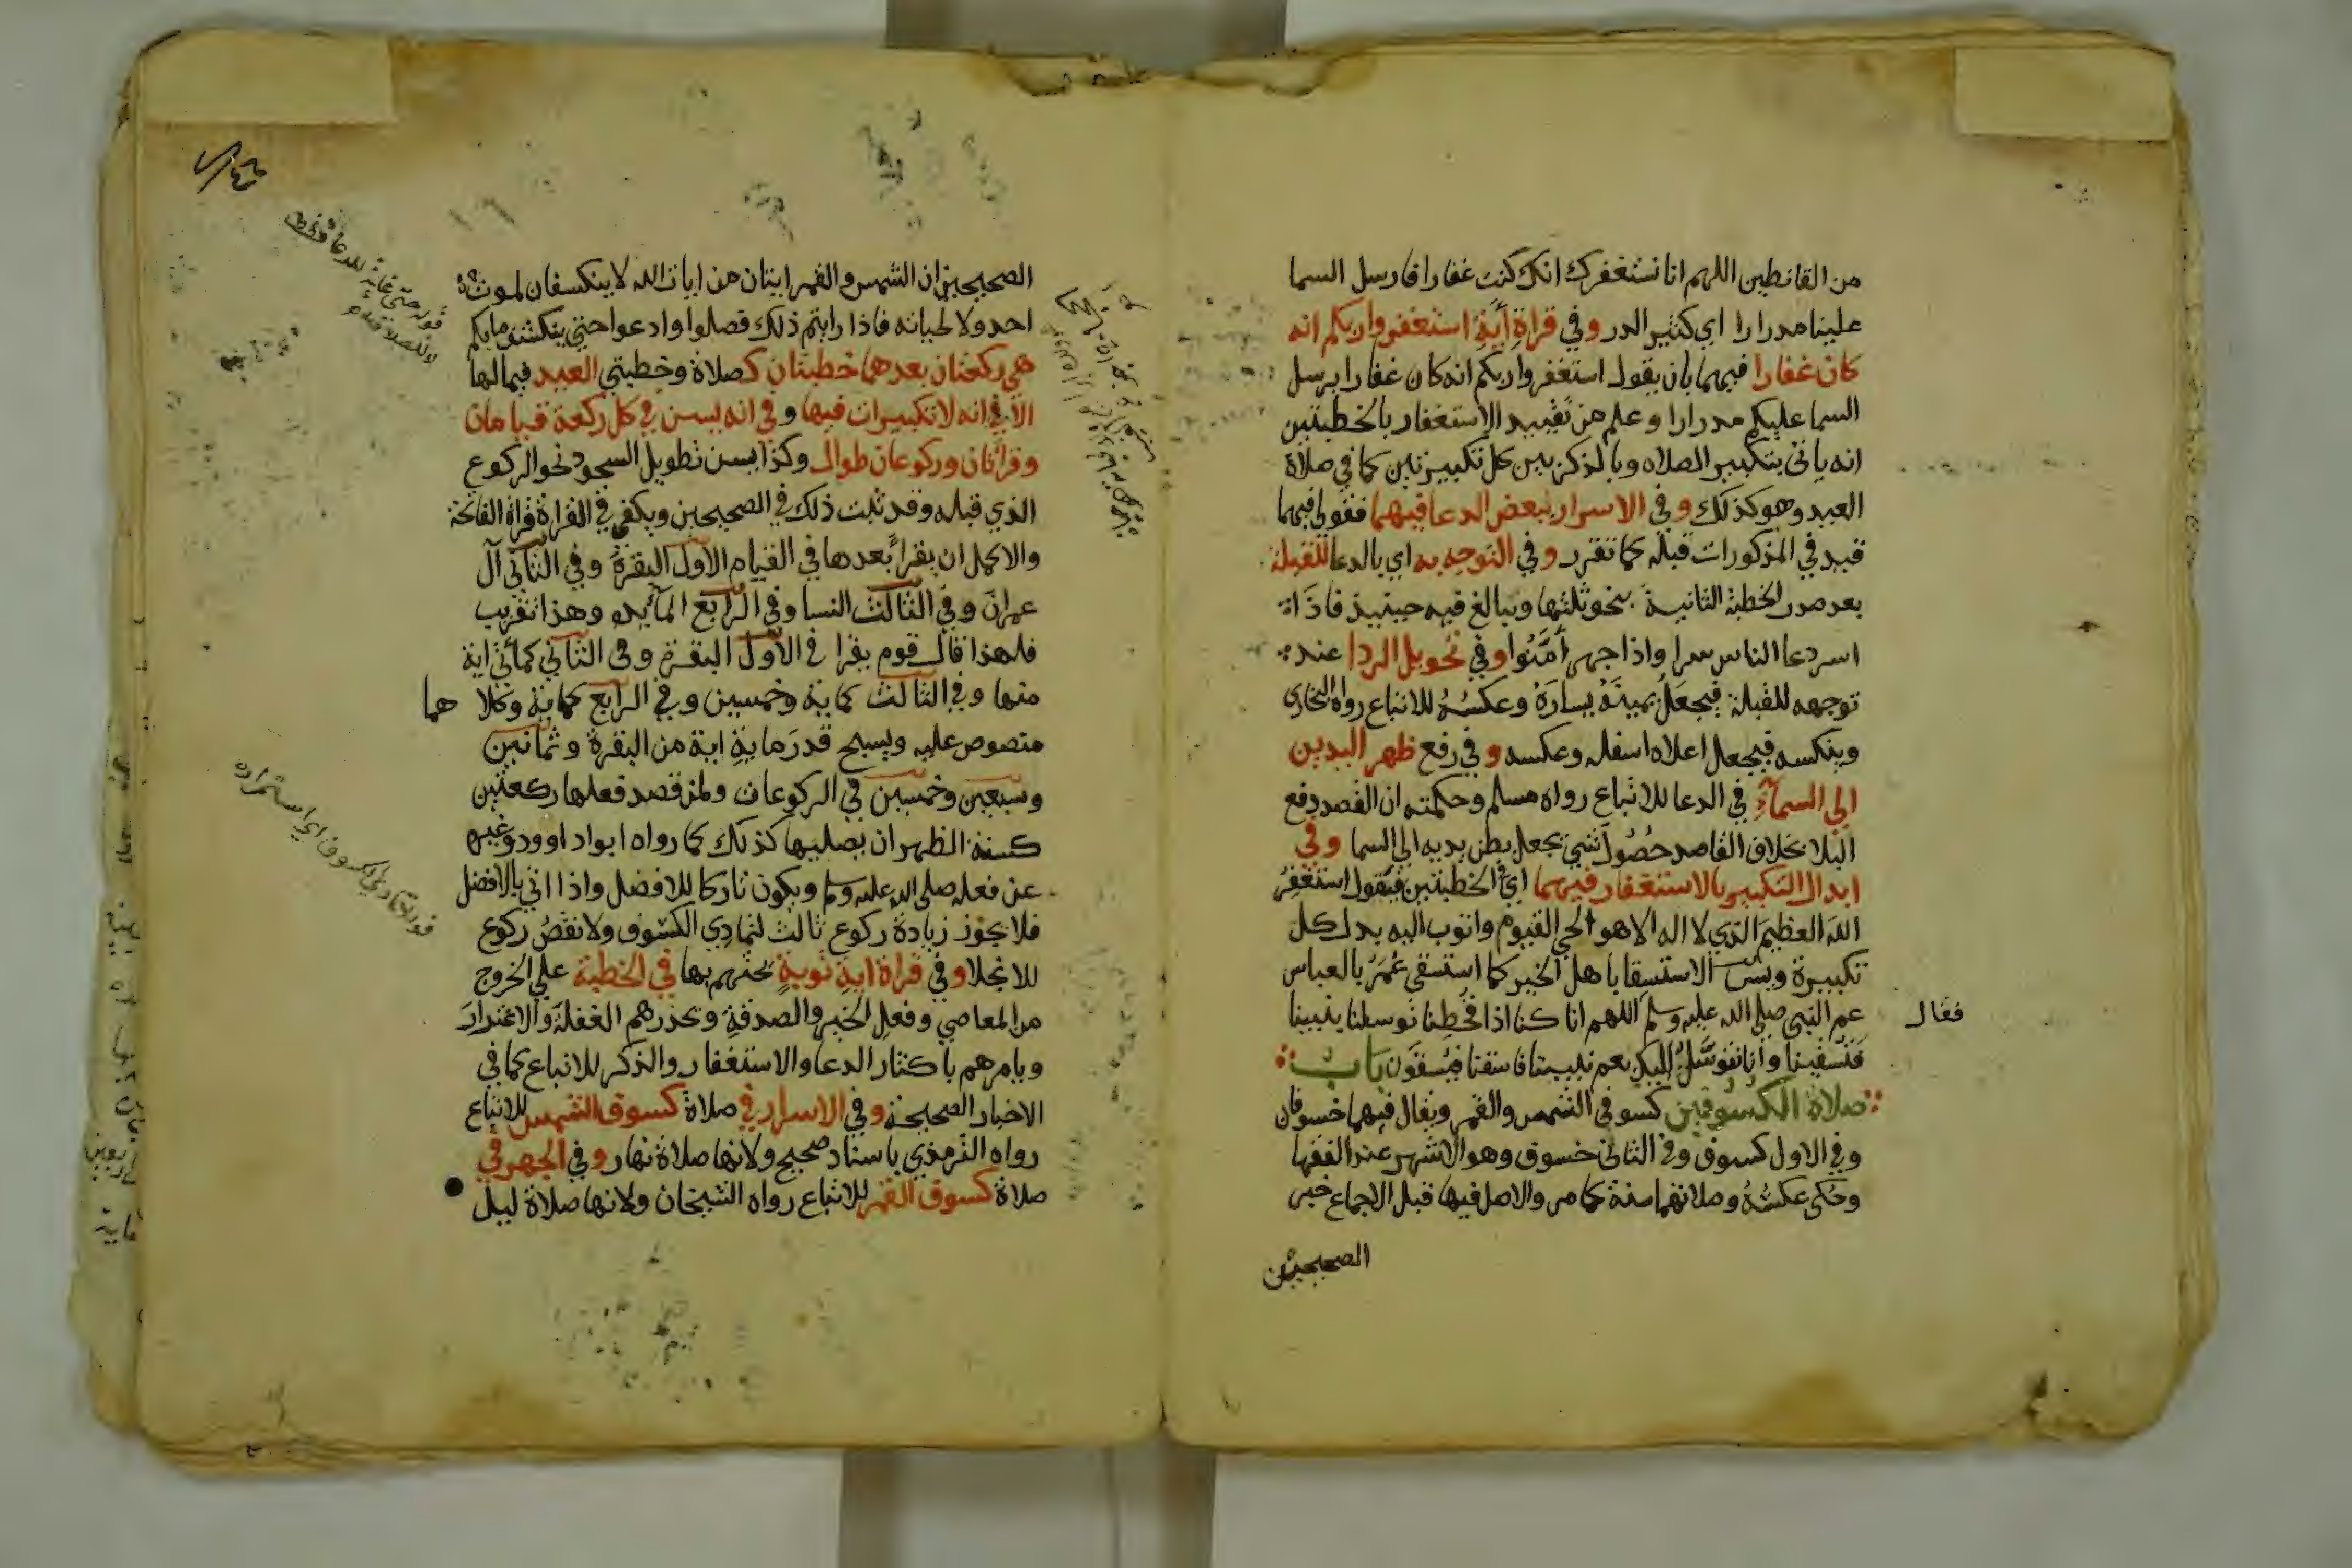 من القانطين اللهم انا نستغفرك انك كنت غفارا فارسل السما
علينا مدرارا اي كثير الدر وفي قراة آية استغفروا ربكم انه
كان غفارا فيهما بان يقول استغفروا ربكم انه كان غفارا يرسل
السما عليكم مدرارا وعلم من تقييد الاستغفار بالخطبتين
انه ياتي بتكبير الصلاه وبالذكر بين كل تكبيرتين كما في صلاة
العيد وهو كذلك وفي الاسرار ببعض الدعا فيهما فقولي فيهما
قيد في المذكورات قبله كما تقرر وفي التوجه به اي بالدعا للقبلة
بعد صدر الخطبة الثانية بنحو ثلثها ويبالغ فيه حينيذ فاذا
اسر دعا الناس سرا واذا جهر أمَّنُوا وفي تحويل الردا عند
توجهه للقبلة فيجعل يمينَهُ يسارَهُ وعكسُهُ للاتباع رواه البخاري
وينكسه فيجعل اعلاه اسفله وعكسه وفي رفع ظهر اليدين
الى السمآءِ في الدعا للاتباع رواه مسلم وحكمته ان القصد رفع
البلا بخلاف القاصد حصُولَ شي يجعل بطن يديه الى السما وفي
ابدال التكبير بالاستغفار فيهما اي في الخطبتين فيقول استغفِرُ
اللهَ العظيمَ الذي لا اله الا هو الحي القيوم واتوب اليه بدل كل
تكبيرة ويسن الاستسقا باهل الخير كما استسقى عُمَرُ بالعباس
عم النبي صلى الله عليه وسلم اللهم انا كنا اذا قُحِطنا توسلنا بنبينا
فقال
فتسقينا وانا نتوسَّلُ اليك بعم نبينا فاسقنا فيُسقَون باب
صلاة الكسوفين كسوفي الشمس والقمر ويقال فيهما خسوفان
وفي الاول كسوف وفي الثاني خسوف وهو الاشهر عند الفقها
وحُكي عكسُهُ وصلاتهما سنة كما مر والاصل فيها قبل الاجماع خبر
الصحيحين
الصحيحين ان الشمس والقمر ايتان من ايات الله لا ينكسفان لموت
احد ولا لحياته فاذا رايتم ذلك فصلوا وادعوا حتى ينكشف ما بكم
هي ركعتان بعدهما خطبتان كصلاة وخطبتي العيد فيما لها
الا في انه لا تكبيرات فيها وفي انه يسن في كل ركعة قيامان
وقراتان وركوعان طوال وكذا يسن تطويل السجود نحو الركوع
الذي قبله وقد ثبت ذلك في الصحيحين ويكفي في القراة قراة الفاتحة
والاكمل ان يقرا بعدها في القيام الاول البقرة وفي الثاني آل
عمران وفي الثالث النسا وفي الرابع المآيده وهذا تقريب
فلهذا قال قوم يقرا في الاول البقرة وفي الثاني كمأتي اية
منها وفي الثالث كماية وخمسين وفي الرابع كماية وكلا هما
منصوص عليه ويسبح قدرَ مايةِ اية من البقرة وثمانين
وسبعين وخمسين في الركوعات ولمن قصد فعلها ركعتين
كسنة الظهر ان يصليها كذلك كما رواه ابو داوود وغيره
عن فعله صلى الله عليه وسلم ويكون تاركا للافضل واذا اتي بالافضل
فلا يجوز زيادة ركوع ثالث لتمادي الكسوف ولا نقصُ ركوع
للانجلا وفي قراة ايةِ توبةٍ يحثهم بها في الخطبة على الخروج
من المعاصي وفعل الخير والصدقةِ ويحذرهم الغفلةَ والاغترارَ
ويامرهم باكثار الدعا والاستغفار والذكر للاتباع كما في
الاخبار الصحيحة وفي الاسرار في صلاة كسوف الشمس للاتباع
رواه الترمذي باسناد صحيح ولانها صلاة نهار وفي الجهر في
صلاة كسوف القمر للاتباع رواه الشيخان ولانها صلاة ليل
قوله لتمادي الكسوف اي استمراره